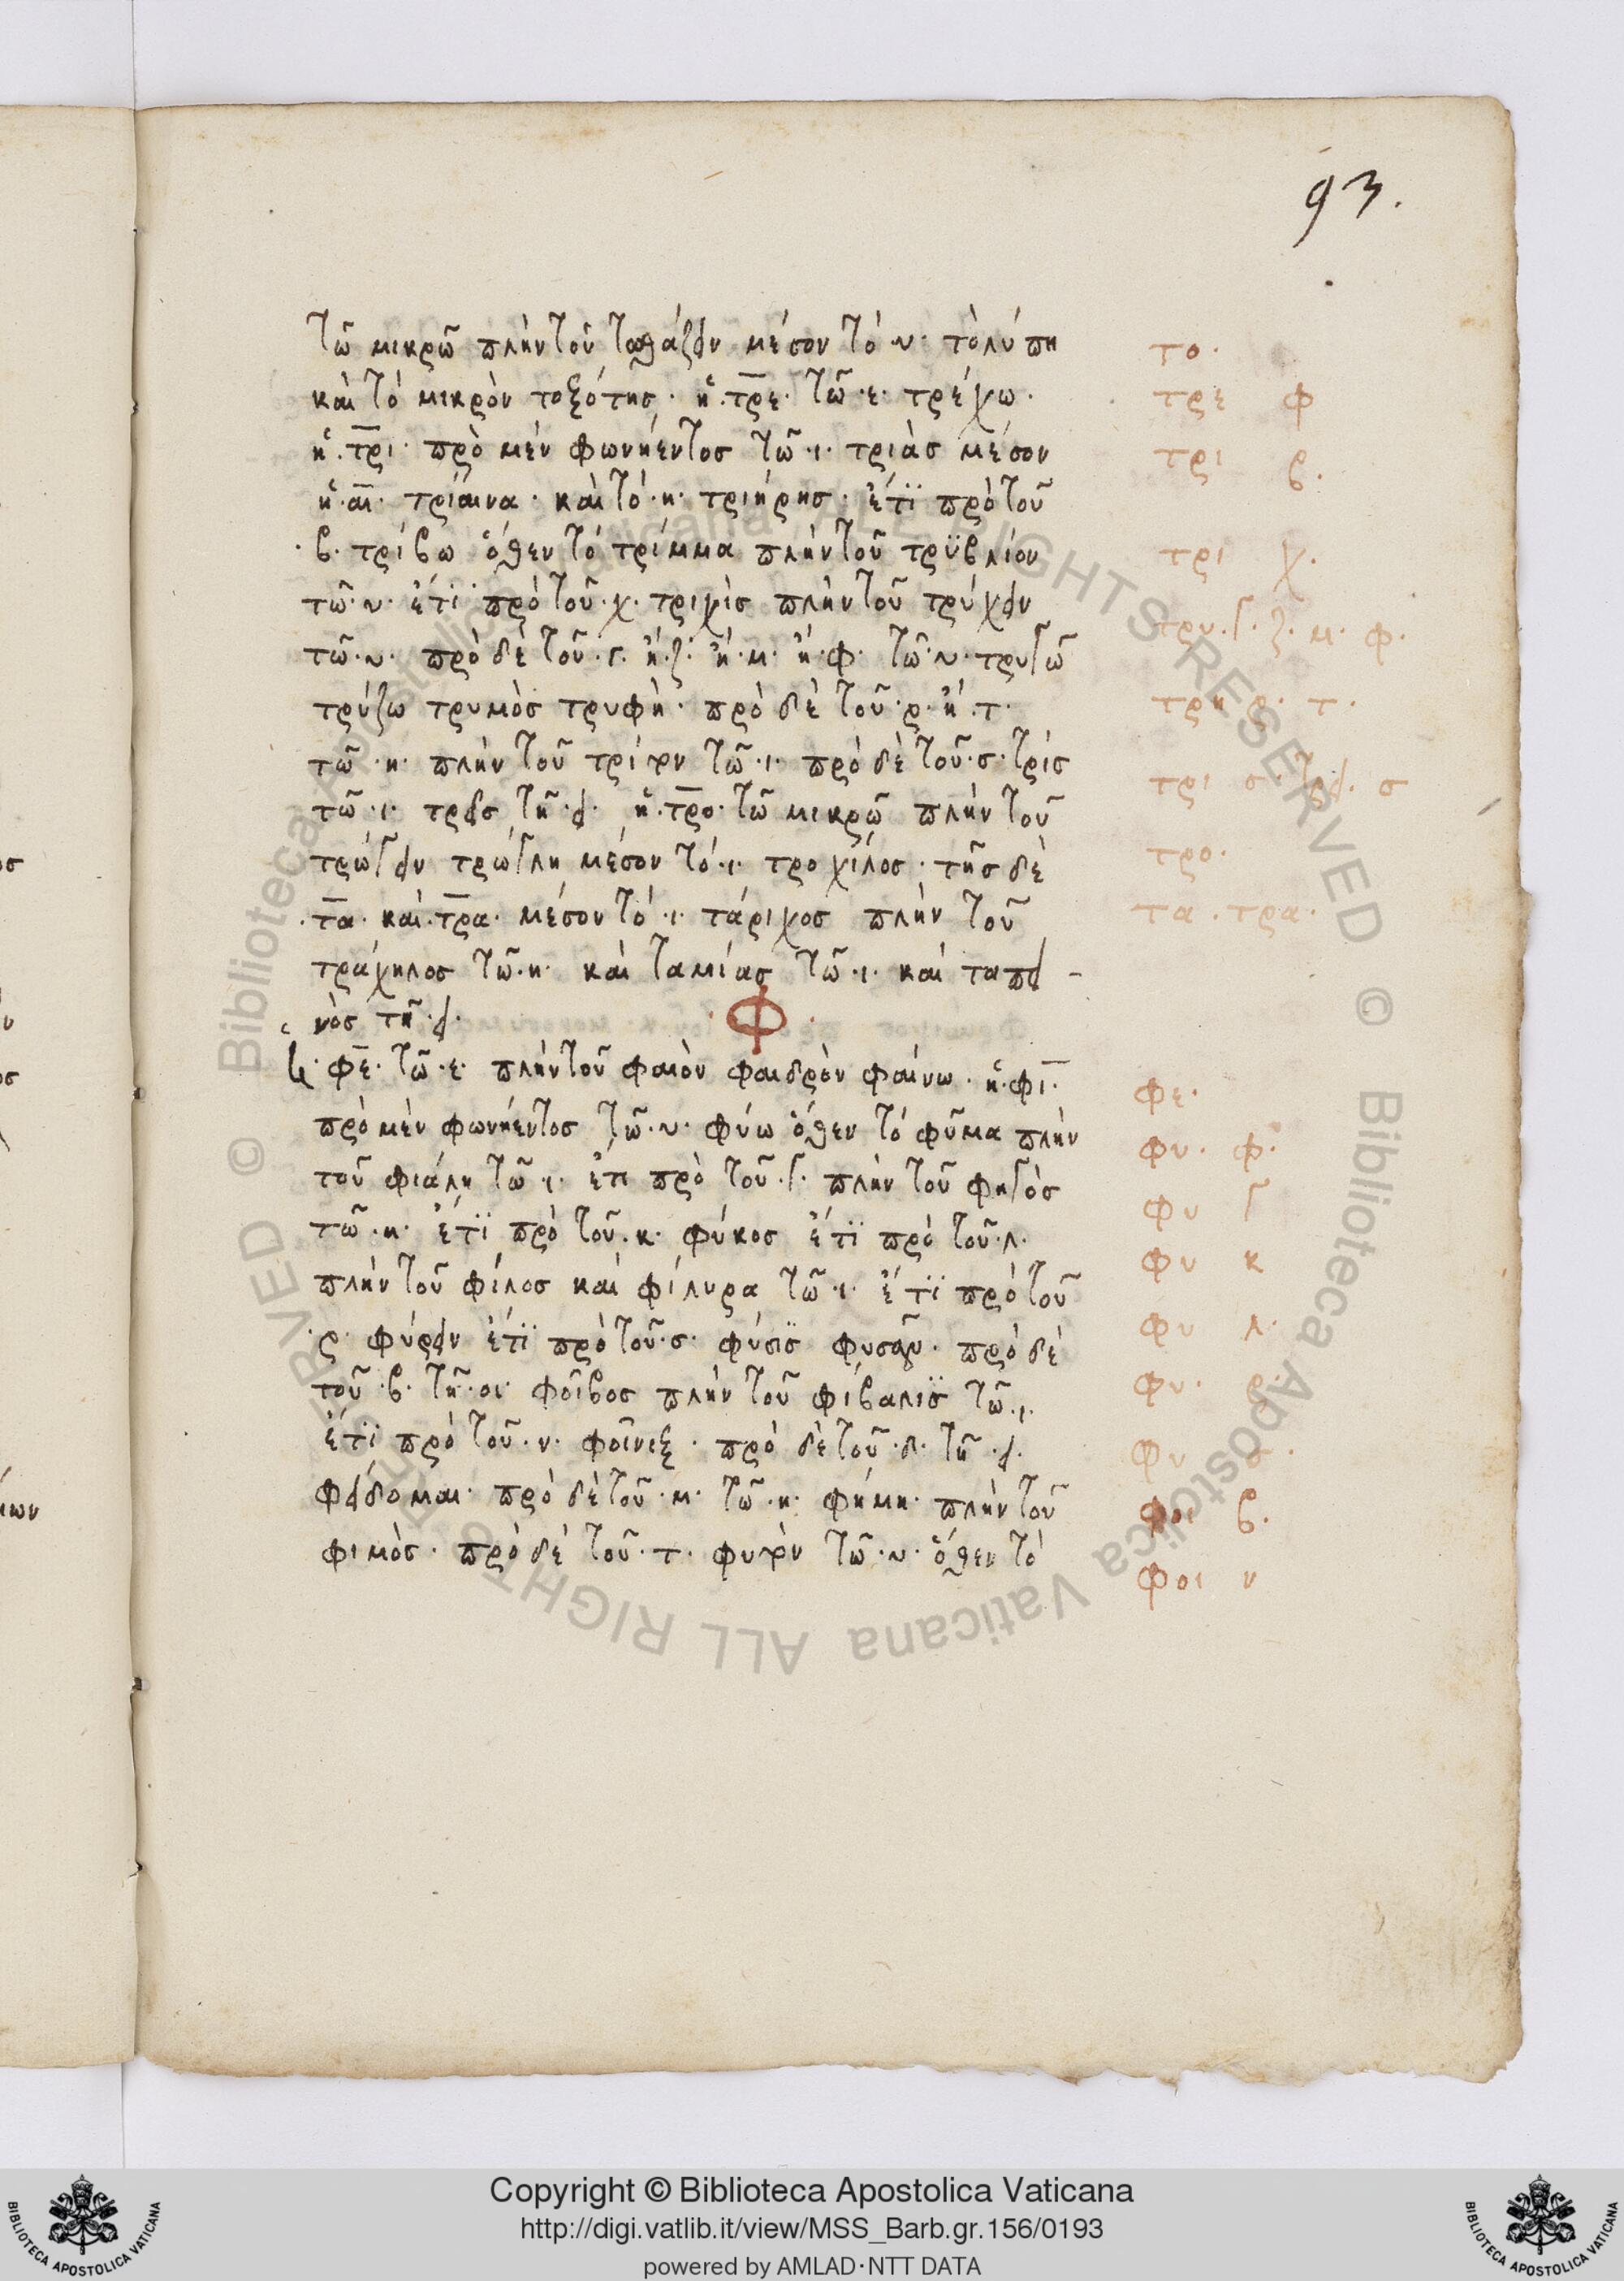 93.
τῶ μικρῶ πλὴν τοῦ τωθάζειν μέσον τὸ ·υ· τολύπη
καὶ τὸ μικρὸν τοξότης· ἡ ·τρε· τῶ ·ε· τρέχω·
ἡ ·τρι· πρὸ μὲν φωνήεντος τῶ ·ι· τριὰς μέσον
ἡ ·αι· τρίαινα· καὶ τὸ ·η· τριήρης· ἔτϊ πρὸ τοῦ
·β· τρίβω ὅθεν τὸ τρίμμα πλὴν τοῦ τρϋβλίον
τῶ ·υ· ἔτϊ πρὸ τοῦ ·χ· τριχὶς πλὴν τοῦ τρύχειν
τῶ ·υ· πρὸ δὲ τοῦ ·γ· ἢ ·ζ· ἢ ·μ· ἢ ·φ· τῶ ·υ· τρυγῶ
τρύζω τρυμὸς τρυφὴ· πρὸ δὲ τοῦ ·ρ· ἢ ·τ·
τῶ ·η· πλὴν τοῦ τρίτην τῶ ·ι· πρὸ δὲ τοῦ ·σ· τρὶς
τῶ ·ι· τρεῖς τῆ ·ει· ἡ ·τρο· τῶ μικρῶ πλὴν τοῦ
τρώγειν τρώγλη μέσον τὸ ·ι· τροχίλος· τῆς δὲ
·τα· καὶ ·τρα· μέσον τὸ ·ι· τάριχος πλὴν τοῦ
τράχηλος τῶ ·η· καὶ ταμίας τῶ ·ι· καὶ ταπει-
νὸς τῆ ·ει· ·Φ·
ἡ ·φε· τῶ ·ε· πλὴν τοῦ φαιὸν φαιδρὸν φαίνω· ἡ ·φι·
πρὸ μὲν φωνήεντος τῶ ·υ· φύω ὅθεν τὸ φῦμα πλὴν
τοῦ φιάλη τῶ ·ι· ἔτι πρὸ τοῦ ·γ· πλὴν τοῦ φηγὸς
τῶ ·η· ἔτϊ πρὸ τοῦ ·κ· φύκος ἔτϊ πρὸ τοῦ ·λ·
πλὴν τοῦ φίλος καὶ φίλυρα τῶ ·ι· ἔτϊ πρὸ τοῦ
·ρ· φύρειν ἔτϊ πρὸ τοῦ ·σ· φύσϊς φυσᾶν· πρὸ δὲ
τοῦ ·β· τῆ ·οι· φοῖβος πλὴν τοῦ φίβαλϊς τῶ ·ι·
ἔτϊ πρὸ τοῦ ·ν· φοῖνιξ· πρὸ δὲ τοῦ ·δ· τῆ ·ει·
φείδομαι· πρὸ δὲ τοῦ ·μ· τῶ ·η· φήμη· πλὴν τοῦ
φιμὸς· πρὸ δὲ τοῦ ·τ· φυτὸν τῶ ·υ· ὅθεν τὸ
το·
τρε φ
τρι β·
τρι χ·
τρυ·γ·ζ·μ·φ·
τρη ρ· τ·
τρι σ· τρει· σ
τρο·
τα· τρα·
φε·
φυ· φ·
φυ γ
φυ κ
φυ λ·
φυ· ρ·
φυ σ·
φοι β·
φοι ν
Copyright © Biblioteca Apostolica Vaticana
http://digi.vatlib.it/view/MSS_Barb.gr.156/0193
powered by AMLAD·NTT DATA
© Biblioteca Apostolica Vaticana ALL RIGHTS RESERVED
© Biblioteca Apostolica Vaticana ALL RIGHTS RESERVED
BIBLIOTECA APOSTOLICA VATICANA
BIBLIOTECA APOSTOLICA VATICANA